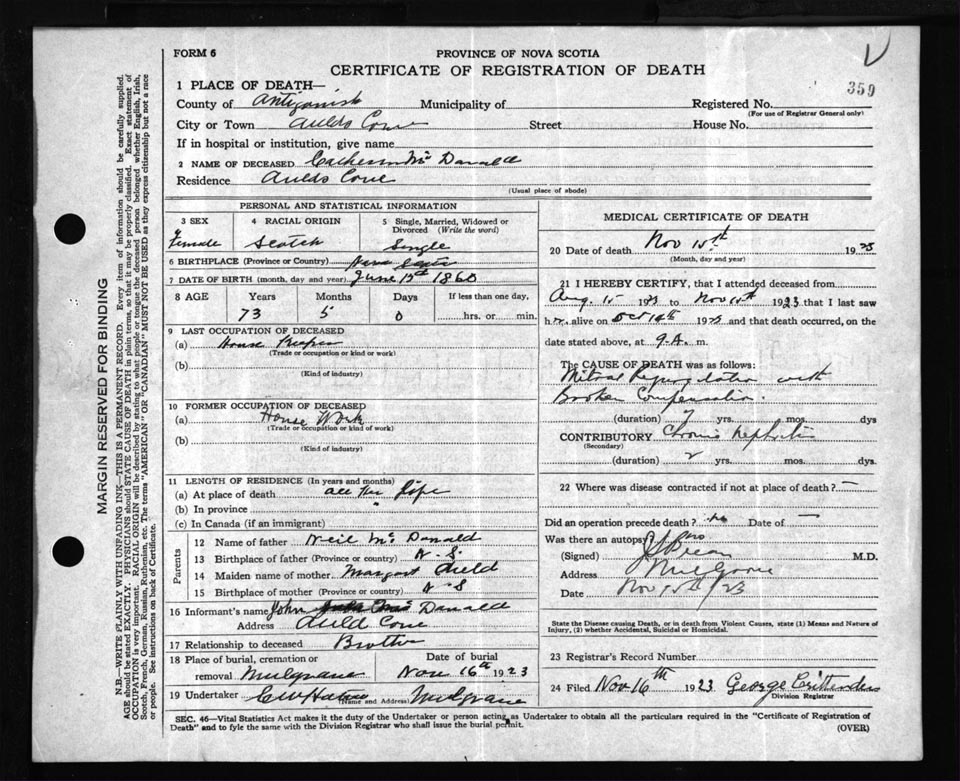 FORM 6
PROVINCE OF NOVA SCOTIA
CERTIFICATE OF REGISTRATION OF DEATH
359
1 PLACE OF DEATH—
County of Antigonish Municipality of Registered No.
(For use of Registrar General only)
City or Town Aulds Cove Street House No.
If in hospital or institution, give name
2 NAME OF DECEASED Mc Donald
Residence Aulds Cove
(Usual place of abode)
PERSONAL AND STATISTICAL INFORMATION
3 SEX 4 RACIAL ORIGIN 5 Single, Married, Widowed or Divorced (Write the word)
Female Scotch Single
6 BIRTHPLACE (Province or Country) Nova Scotia
7 DATE OF BIRTH (month, day and year) June 1860
8 AGE Years Months Days If less than one day,
73 5 0 hrs. or min.
9 LAST OCCUPATION OF DECEASED
(a) House Keeper
(Trade or occupation or kind or work)
(b)
(Kind of industry)
10 FORMER OCCUPATION OF DECEASED
(a) House Work
(Trade or occupation or kind of work)
(b)
(Kind of industry)
11 LENGTH OF RESIDENCE (In years and months)
(a) At place of death all her life
(b) In province
(c) In Canada (if an immigrant)
Parents
12 Name of father Neil Mc Donald
13 Birthplace of father (Province or country) N. S.
14 Maiden name of mother Margaret Auld
15 Birthplace of mother (Province or country) N S
16 Informant's name John Donald
Address Auld Cove
17 Relationship to deceased Brother
18 Place of burial, cremation or Date of burial
removal Mulgrave Nov 16th 1923
19 Undertaker Mulgrave
(Name and Address)
MEDICAL CERTIFICATE OF DEATH
20 Date of death Nov 15th 19
(Month, day and year)
21 I HEREBY CERTIFY, that I attended deceased from
Aug. 15 to Nov 1923 that I last saw
her alive on Oct 14th 19 and that death occurred, on
date stated above, at 9. A. m.
The CAUSE OF DEATH was as follows:
Mitral Regurgitation with
Broken Compensation.
(duration) yrs. mos. dys
CONTRIBUTORY Chronic Nephritis
(Secondary)
(duration) 2 yrs. mos. dys.
22 Where was disease contracted if not at place of death? —
Did an operation precede death? no Date of —
Was there an autopsy? no
(Signed) M.D.
Address Mulgrave
Date Nov 15th /23
State the Disease causing Death, or in death from Violent Causes, state (1) Means and Nature of
Injury, (2) whether Accidental, Suicidal or Homicidal.
23 Registrar's Record Number
24 Filed Nov 16th 1923 George Crittenden
Division Registrar
SEC. 46—Vital Statistics Act makes it the duty of the Undertaker or person acting as Undertaker to obtain all the particulars required in the "Certificate of Registration of
Death" and to fyle the same with the Division Registrar who shall issue the burial permit.
(OVER)
MARGIN RESERVED FOR BINDING
N.B.—WRITE PLAINLY WITH UNFADING INK—THIS IS A PERMANENT RECORD. Every item of information should be carefully supplied.
AGE should be stated EXACTLY. PHYSICIANS should STATE CAUSE OF DEATH in plain terms, so that it may be properly classified. Exact statement of
OCCUPATION is very important. RACIAL ORIGIN will be described by stating to what people or tongue the deceased person belonged whether English, Irish,
Scotch, French, German, Russian, Ruthenian, etc. The terms "AMERICAN" OR "CANADIAN" MUST NOT BE USED as they express citizenship but not a race
or people. See instructions on back of Certificate.